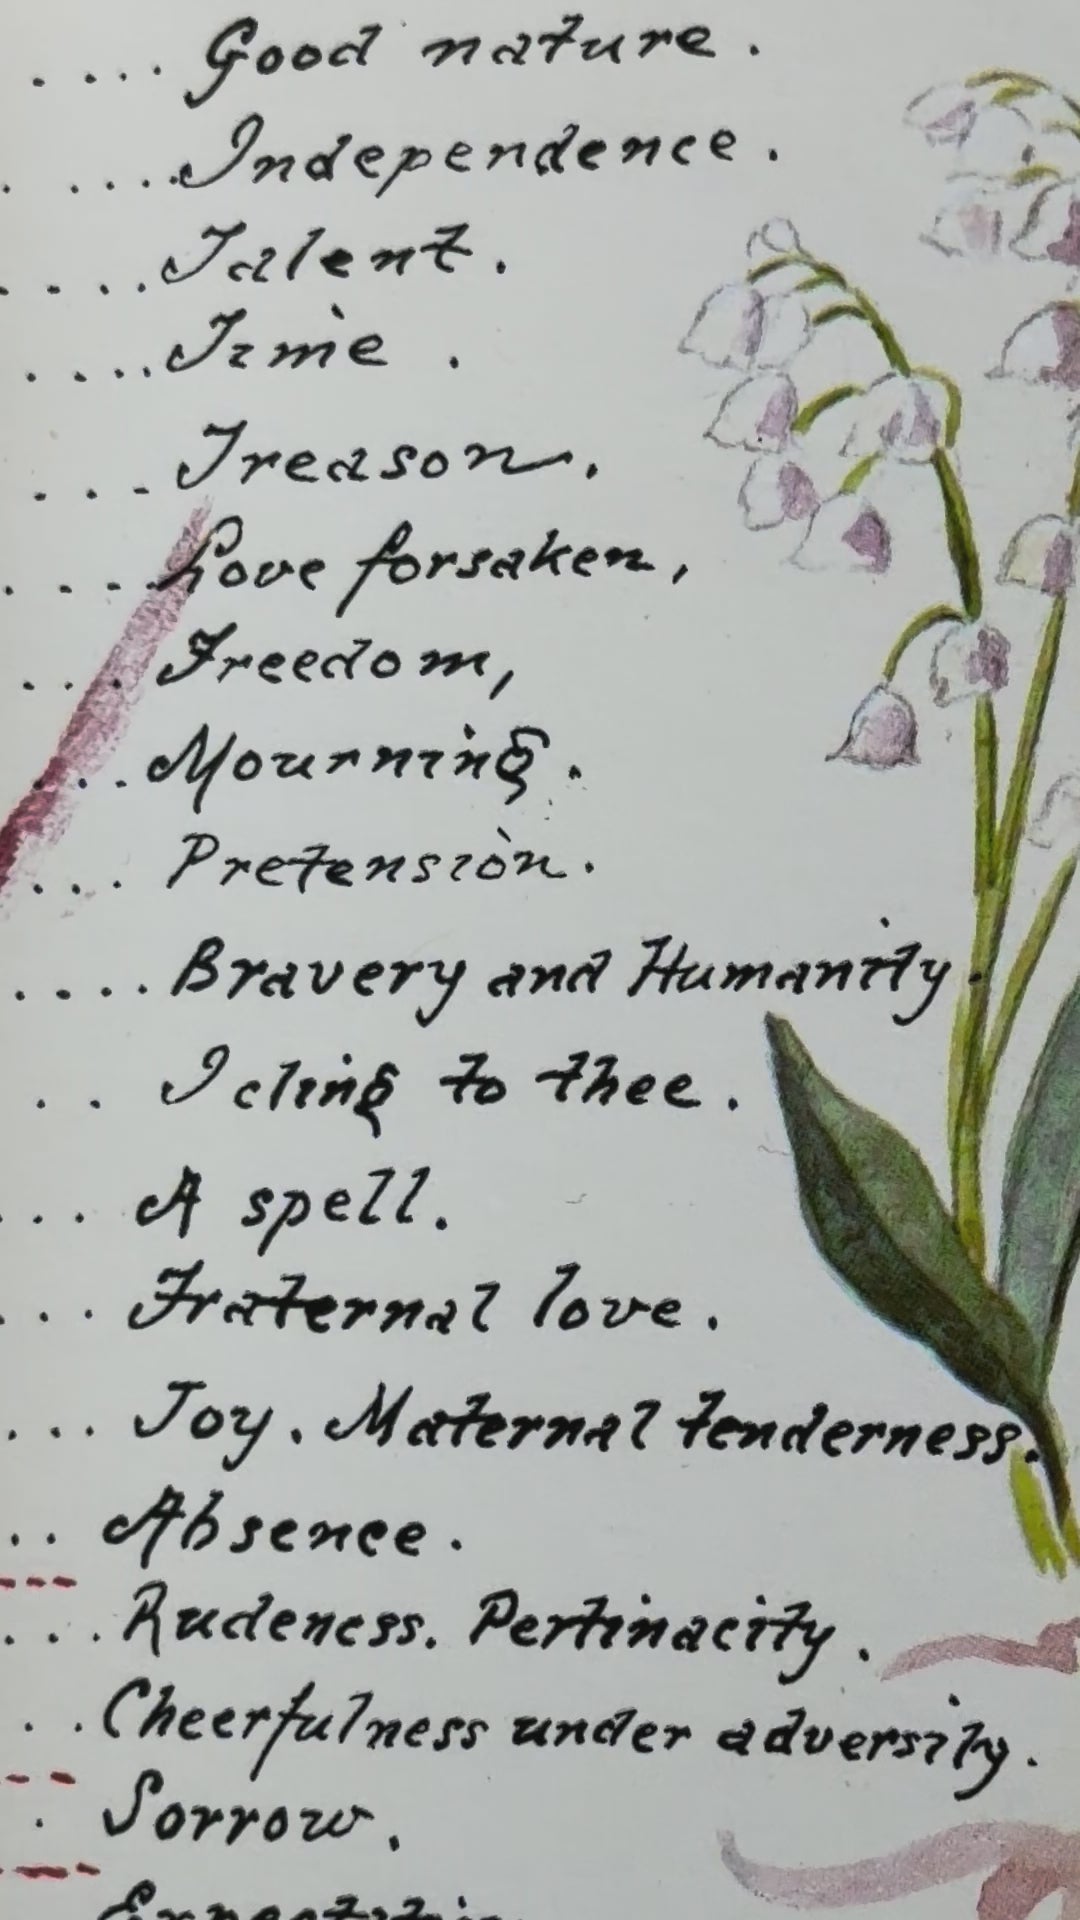 .... Good nature.
. .... Independence.
.... Talent.
.... Time.
... - Treason.
. . - - Love forsaken,
... Freedom,
... Mourning.
... Pretension.
.... Bravery and Humanity.
.. I cling to thee.
... A spell.
... Fraternal love.
... Joy. Maternal tenderness.
.. Absence.
... Rudeness. Pertinacity.
.. Cheerfulness under adversity.
. Sorrow.